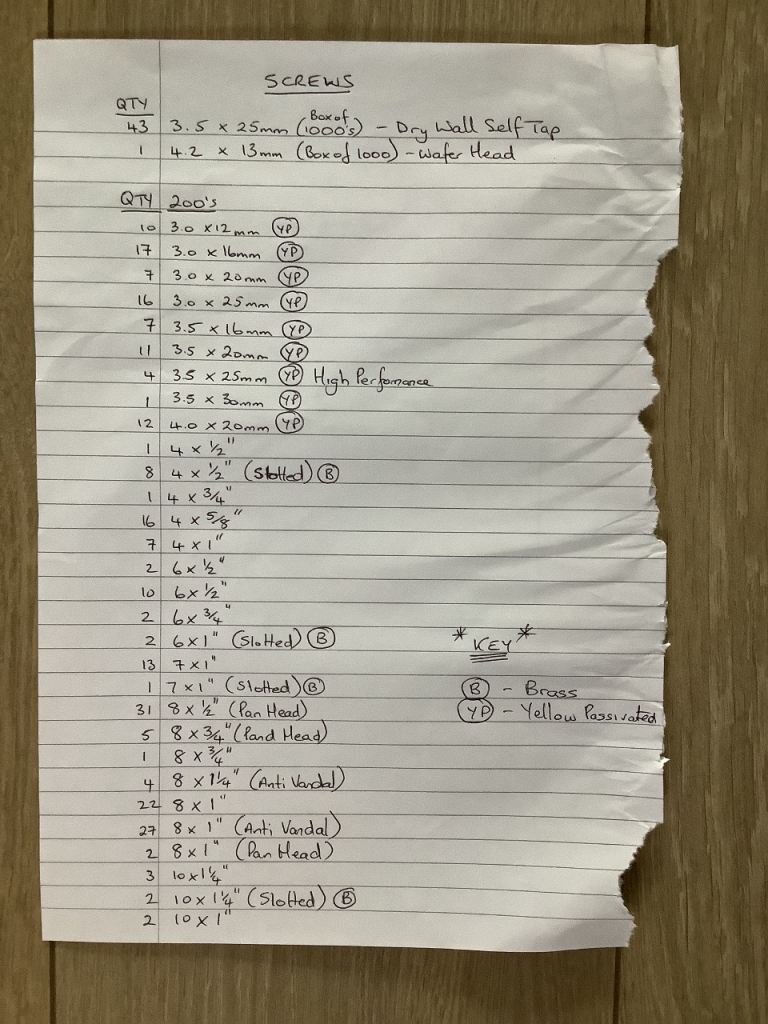 SCREWS
QTY
43 3.5 x 25mm (Box of 1000's) - Dry Wall Self Tap
1 4.2 x 13mm (Box of 1000) - Wafer Head
QTY 200's
10 3.0 x 12mm YP
17 3.0 x 16mm YP
7 3.0 x 20mm YP
16 3.0 x 25mm YP
7 3.5 x 16mm YP
11 3.5 x 20mm YP
4 3.5 x 25mm YP High Perfomance
1 3.5 x 30mm YP
12 4.0 x 20mm YP
1 4 x 1/2"
8 4 x 1/2" (Slotted) B
1 4 x 3/4"
16 4 x 5/8"
7 4 x 1"
2 6 x 1/2"
10 6 x 1/2"
2 6 x 3/4"
2 6 x 1" (Slotted) B
13 7 x 1"
1 7 x 1" (Slotted) B
31 8 x 1/2" (Pan Head)
5 8 x 3/4" (Pand Head)
1 8 x 3/4"
4 8 x 1 1/4" (Anti Vandal)
22 8 x 1"
27 8 x 1" (Anti Vandal)
2 8 x 1" (Pan Head)
3 10 x 1 1/4"
2 10 x 1 1/4" (Slotted) B
2 10 x 1"
* KEY *
B - Brass
YP - Yellow Passivated